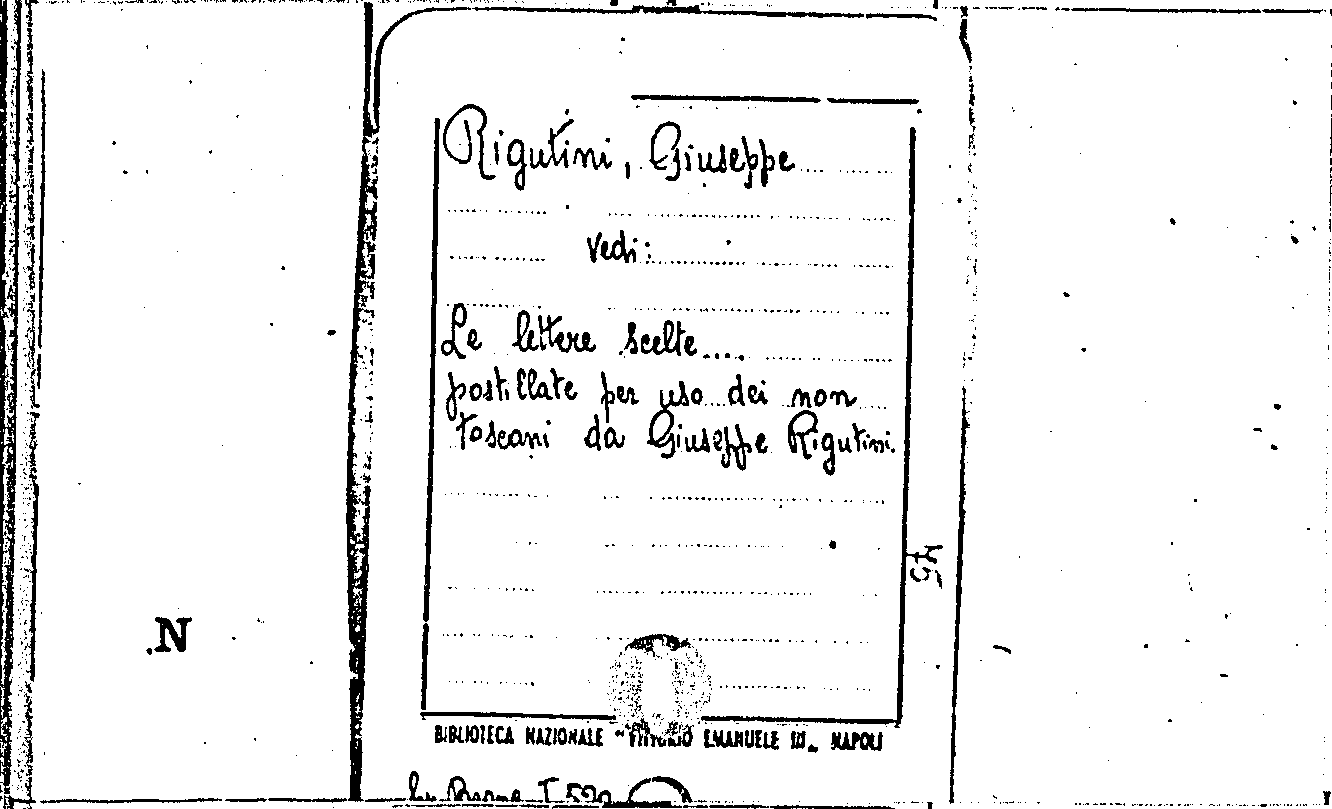 Rigutini, Giuseppe
Vedi:
Le lettere scelte....
postillate per uso dei non
toscani da Giuseppe Rigutini.
45
N
BIBLIOTECA NAZIONALE "VITTORIO EMANUELE III" NAPOLI